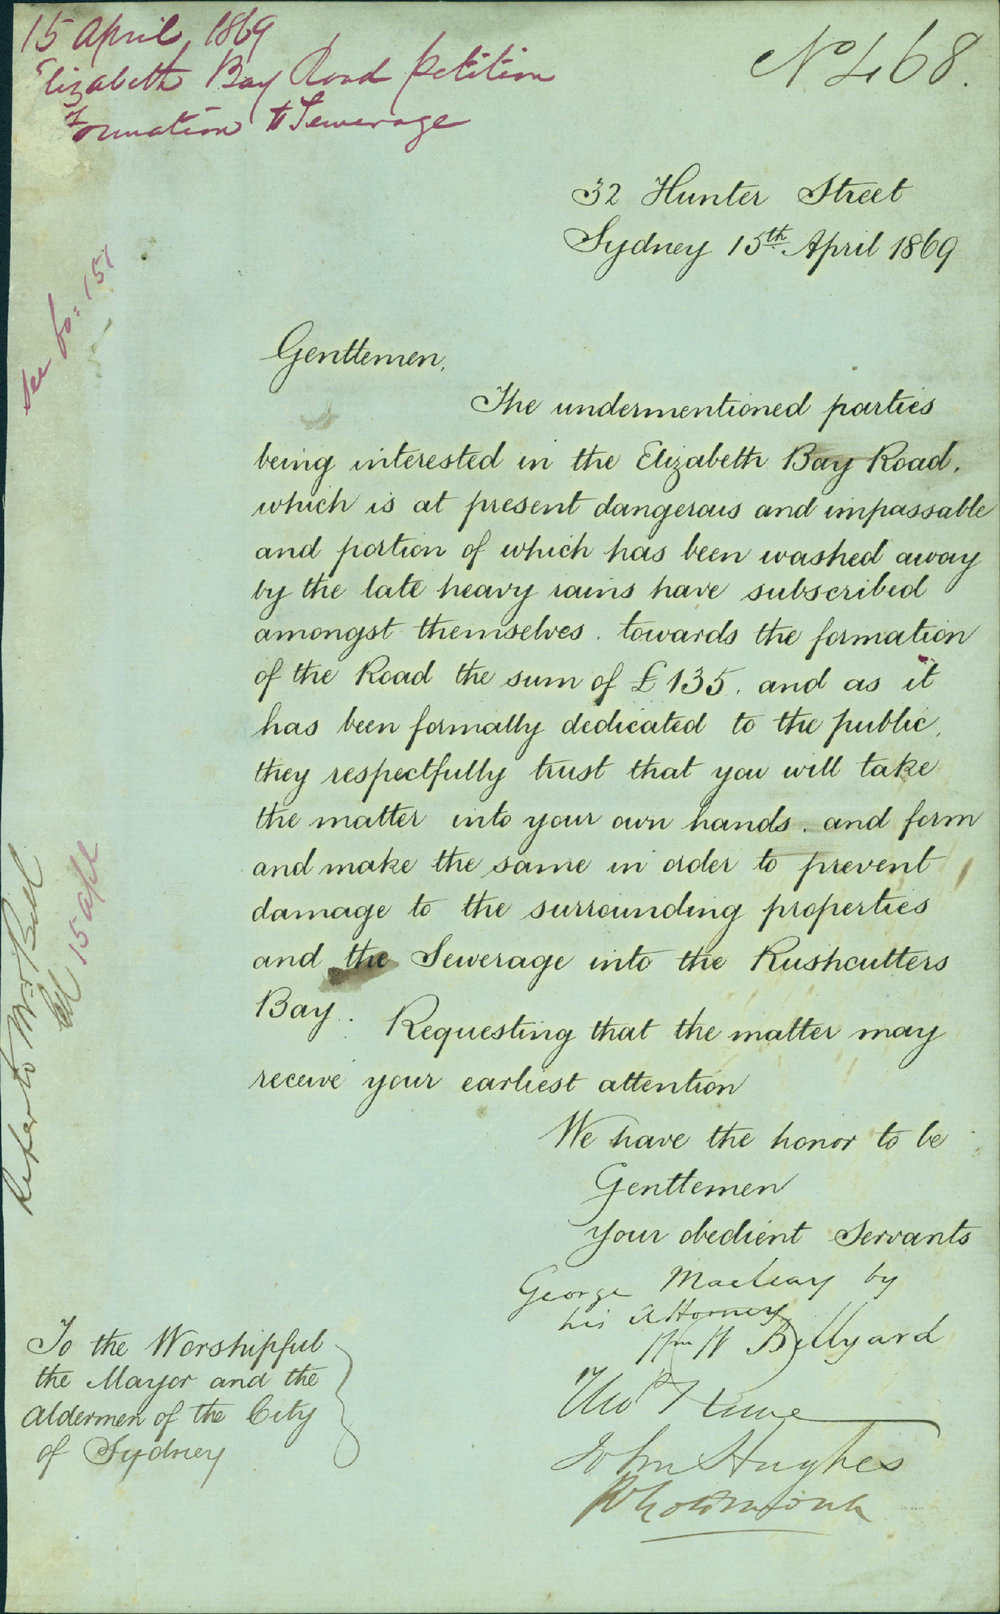 15 April, 1869
Elizabeth Bay Road petition
Formation & Sewerage
No 468.
32 Hunter Street
Sydney 15th April 1869
see fo: 151
Gentlemen,
The undermentioned parties
being interested in the Elizabeth Bay Road,
which is at present dangerous and impassable
and portion of which has been washed away
by the late heavy rains have subscribed
amongst themselves. towards the formation
of the Road the sum of £135. and as it
has been formally dedicated to the public,
they respectfully trust that you will take
the matter into your own hands, and form
and make the same in order to prevent
damage to the surrounding properties
and the Sewerage into the Rushcutters
Bay. Requesting that the matter may
receive your earliest attention
Refer to Mr Bell
15 apl
We have the honor to be
Gentlemen
Your obedient Servants
George Macleay by
his Attorney
Wm W Billyard
Thos
John Hughes
To the Worshipful
the Mayor and the
Aldermen of the City
of Sydney